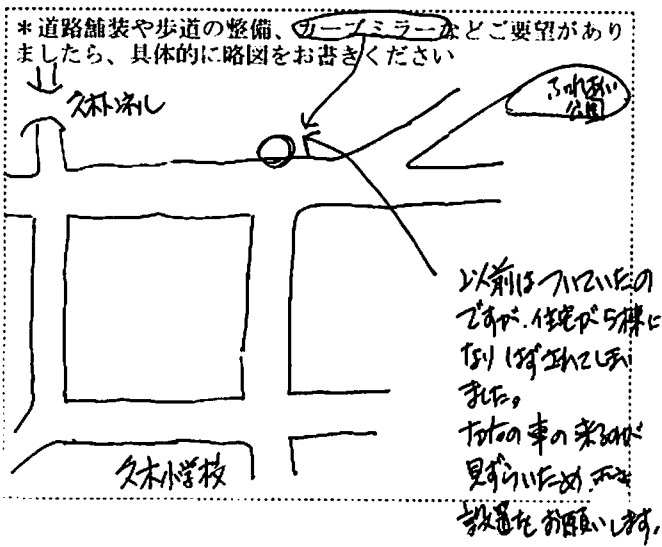 *道路舗装や歩道の整備、カーブミラーなどご要望があり
ましたら、具体的に略図をお書きください
久木トンネル
ふれあい
公園
以前はついていたの
ですが、住宅が5棟に
なりはずされてしまい
ました。
の車の来るのが
見ずらいため
設置をお願いします。
久木小学校